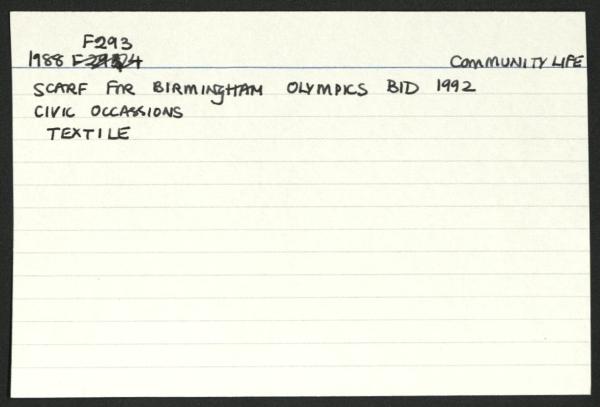 F293
1988 COMMUNITY LIFE
SCARF FOR BIRMINGHAM OLYMPICS BID 1992
CIVIC OCCASSIONS
TEXTILE